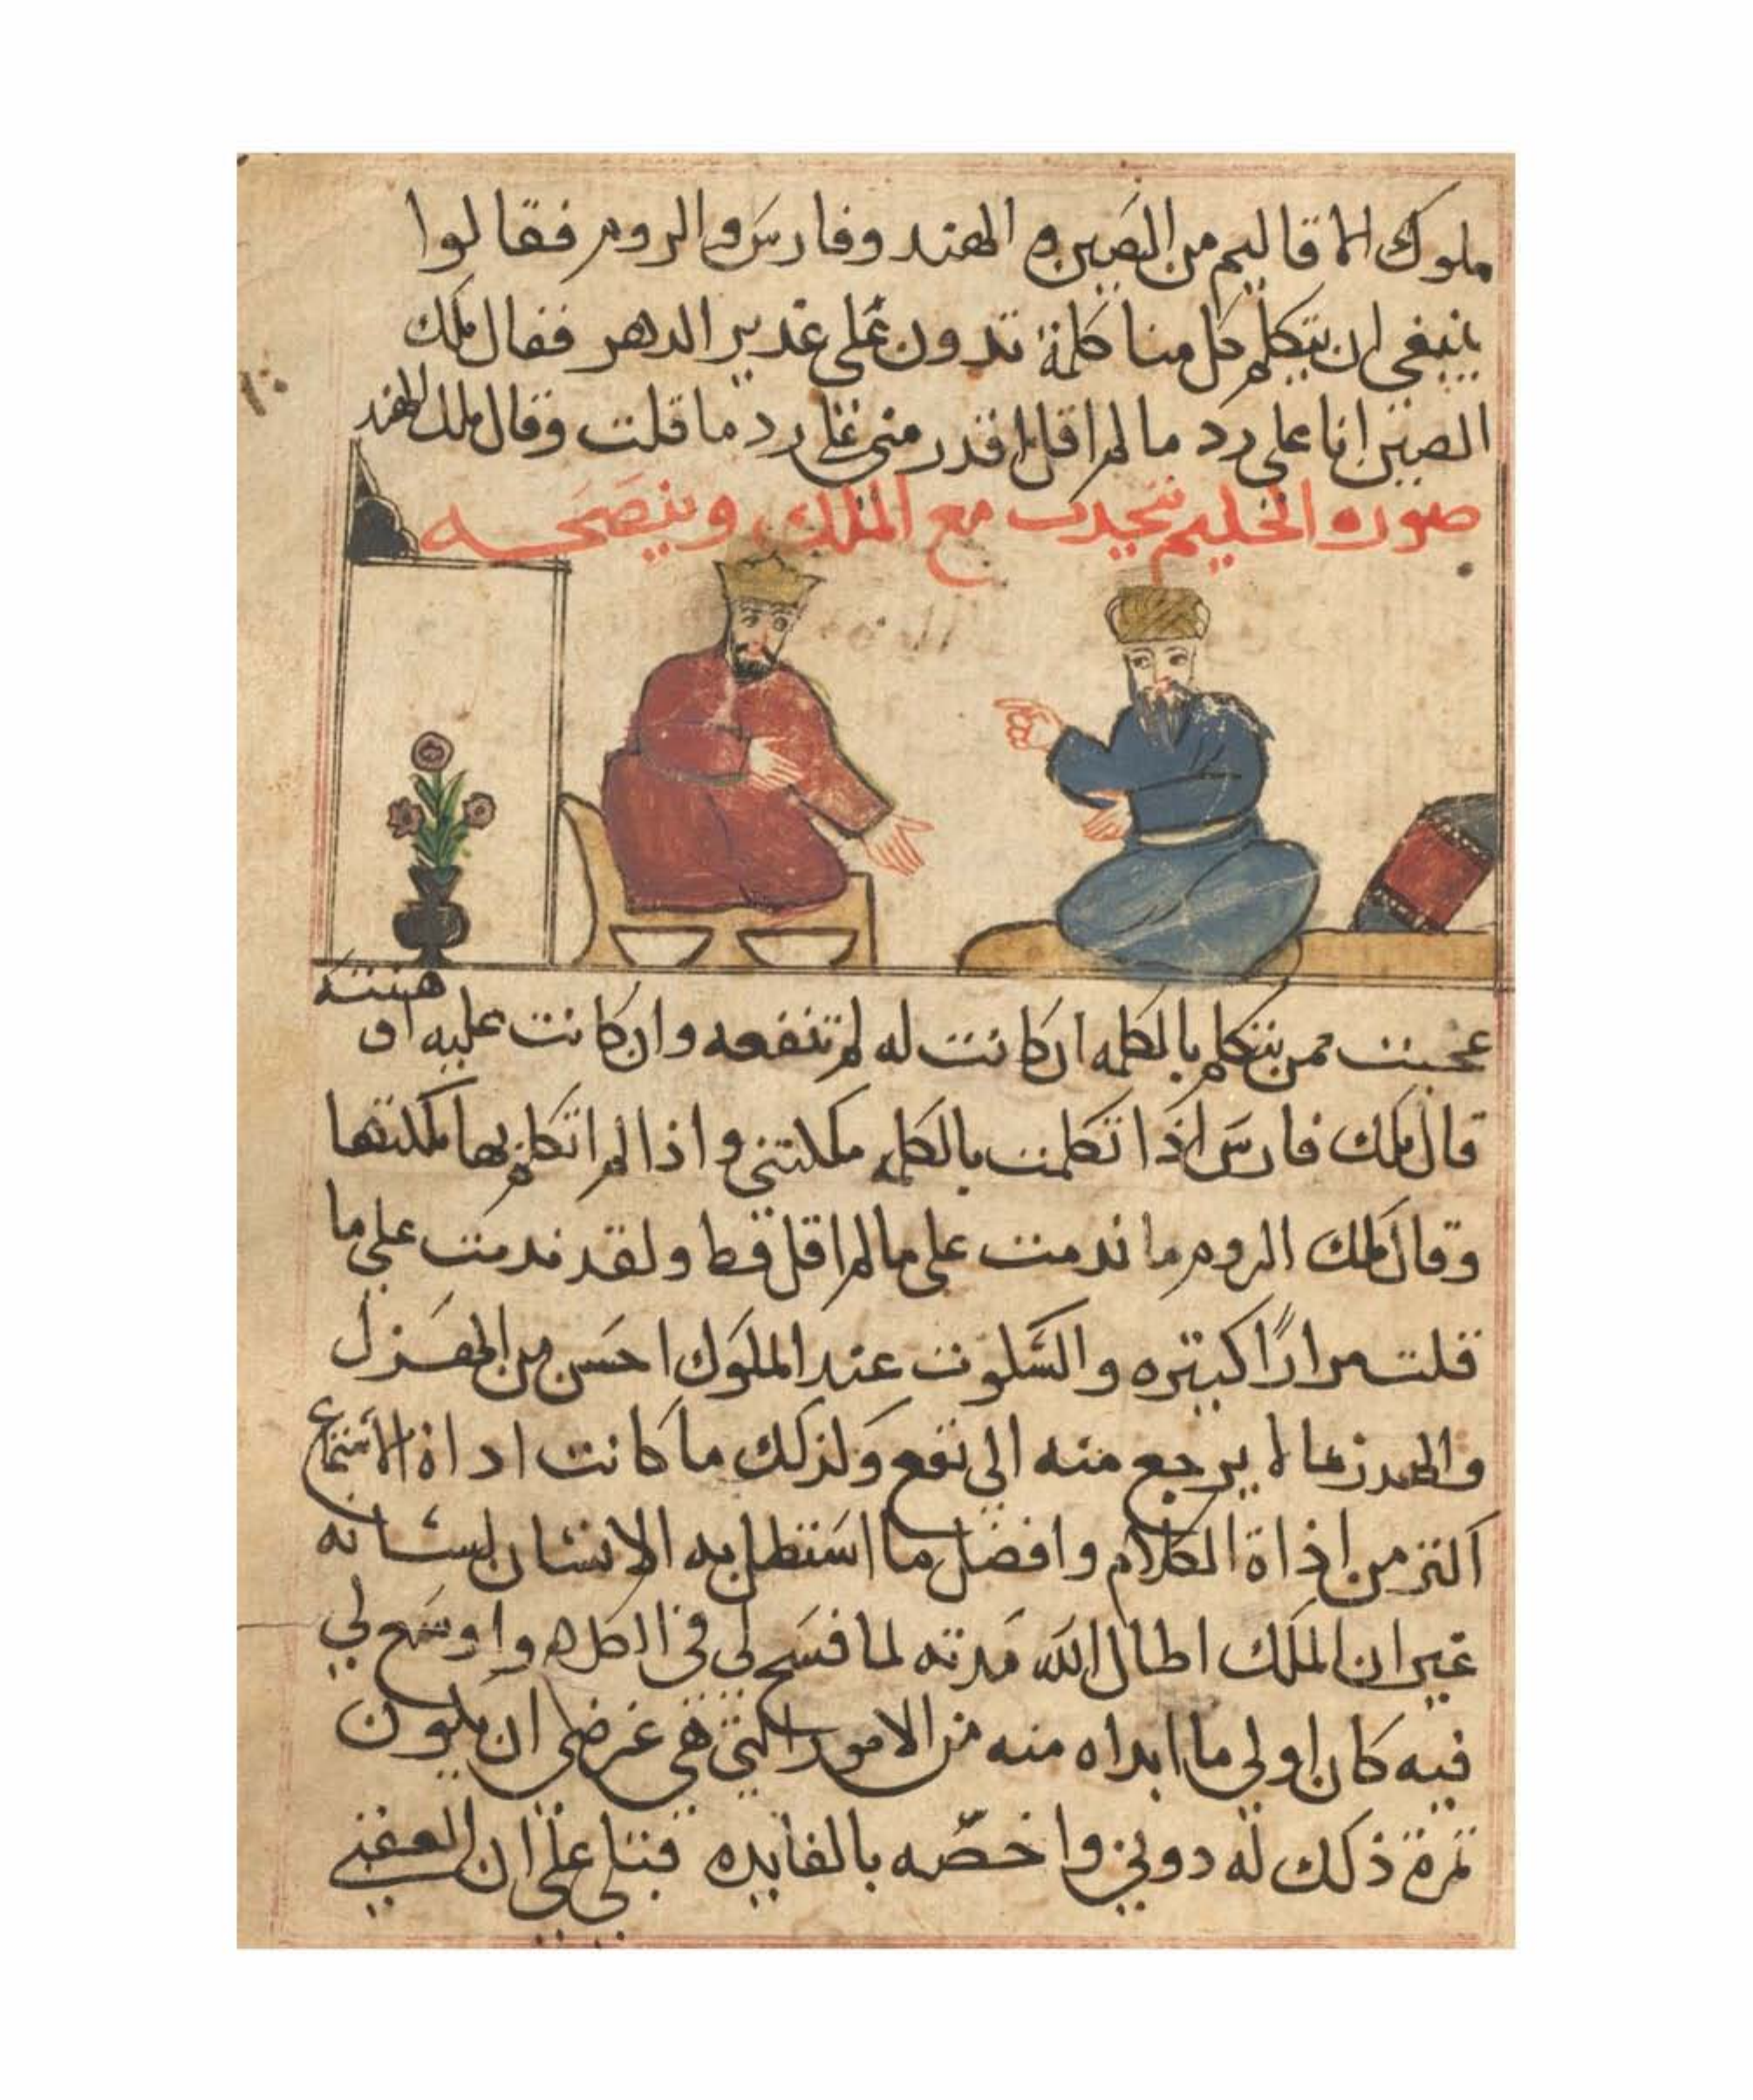 ملوك الاقاليم من الصين و الهند وفارس والروم فقالوا
ينبغي ان يتكلم كل منا كلمة تدون على غدير الدهر فقال ملك
الصين انا على رد ما لم اقل اقدر مني على رد ما قلت وقال ملك الهند
صوره الحكيم يتحدث مع الملك وينصحه
عجبت ممن يتكلم بالكلمه ان كانت له لم تنفعه وان كانت عليه او
قال ملك فارس اذا تكلمت بالكلمه ملكتني و اذا لم اتكلم بها ملكتها
وقال ملك الروم ما ندمت على ما لم اقل قط ولقد ندمت على ما
قلت مرارًا كثيره والسكوت عند الملوك احسن من الهزل
لا يرجع منه الى نفع ولذلك ما كانت اداة الاستماع
من اداة الكلام وافضل ما استظل به الانسان لسانه
غير ان الملك اطال الله مدته لما فسح لي في الكلام واوسع لي
فيه كان اولى ما ابداه منه من الامور التي هي غرضي ان يكون
ثمرة ذلك له دوني واخصّه بالفايده على ان